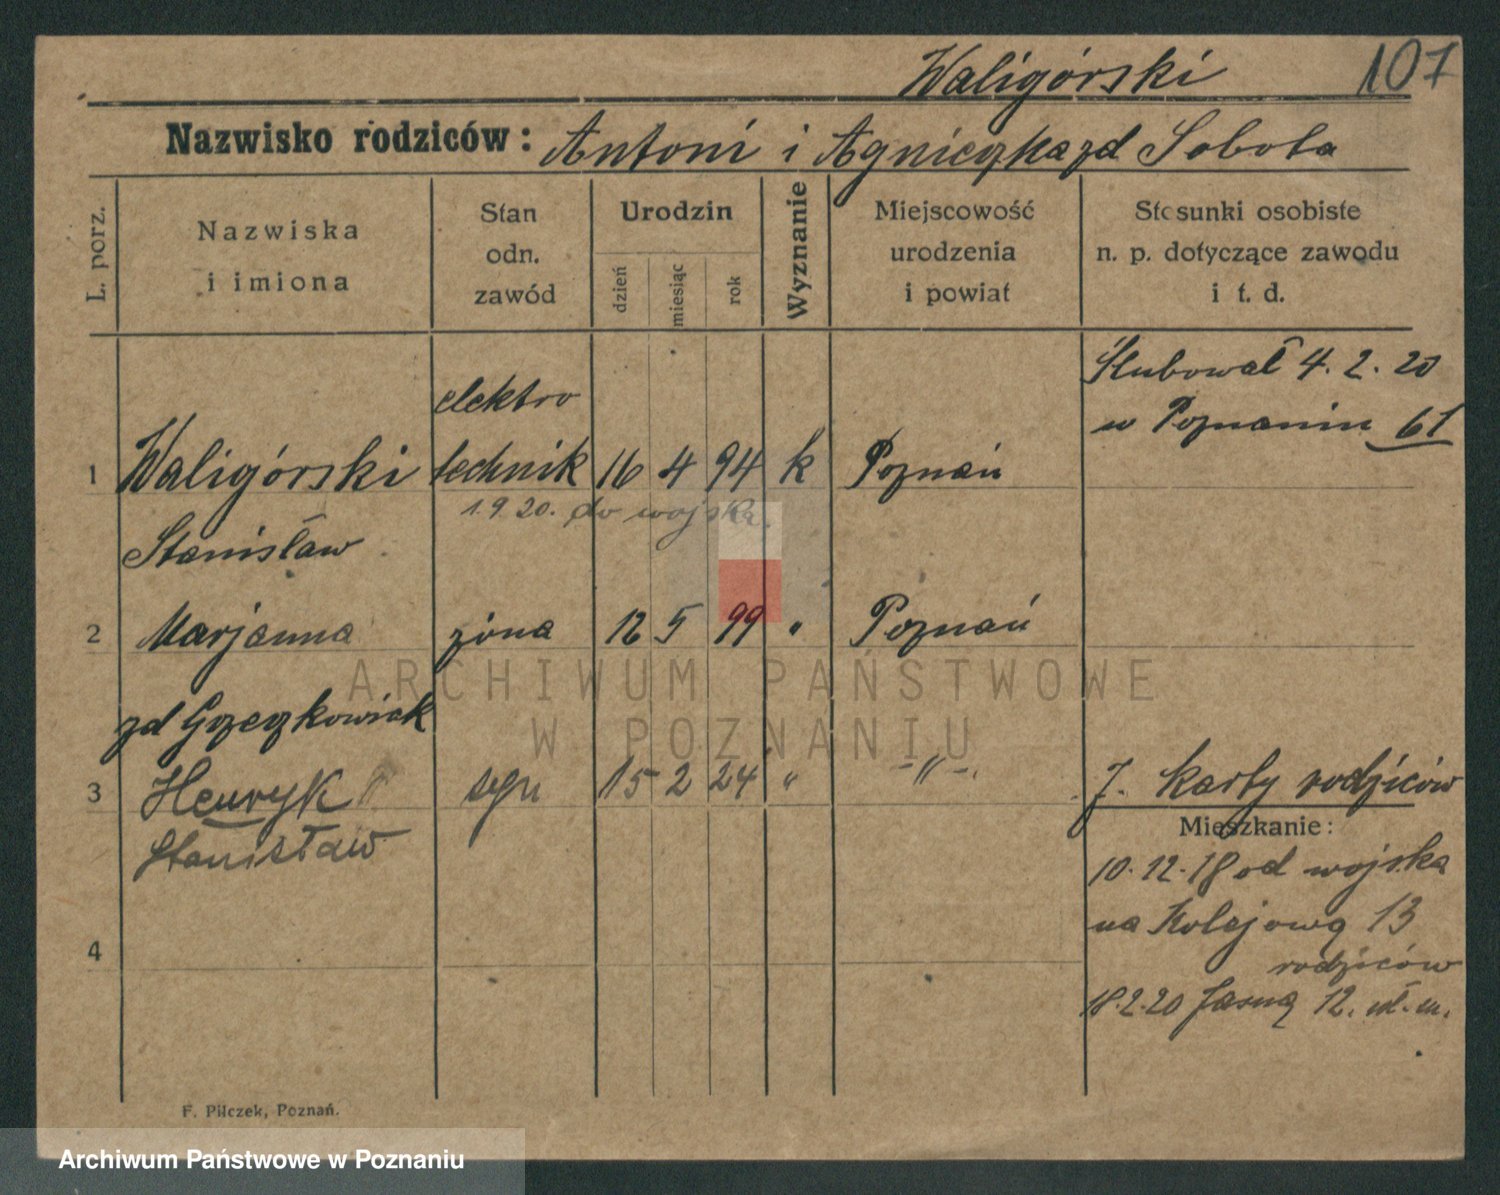 Waligórski 107
Nazwisko rodziców: Antoni i Agnieszka zd Sobota
L. porz.
Nazwiska
i imiona
Stan
odn.
zawód
Urodzin
dzień
miesiąc
rok
Wyznanie
Miejscowość
urodzenia
i powiat
Stosunki osobiste
n. p. dotyczące zawodu
i t. d.
Ślubował 4. 2. 20
w Poznaniu 61
elektro
1 Waligórski technik 16 4 94 k Poznań
1.9.20. do wojska.
Stanisław
2 Marjanna żona 12 5 99 " Poznań
zd Grzeczkowiak
3 Henryk syn 15 2 24 " -"-
Stanisław
J. karty rodziców
Mieszkanie:
10.12.18 od wojska
na Kolejową 13
rodziców
18.2.20 Jasną 12. wł. m.
4
F. Pilczek, Poznań.
ARCHIWUM PAŃSTWOWE
W POZNANIU
Archiwum Państwowe w Poznaniu